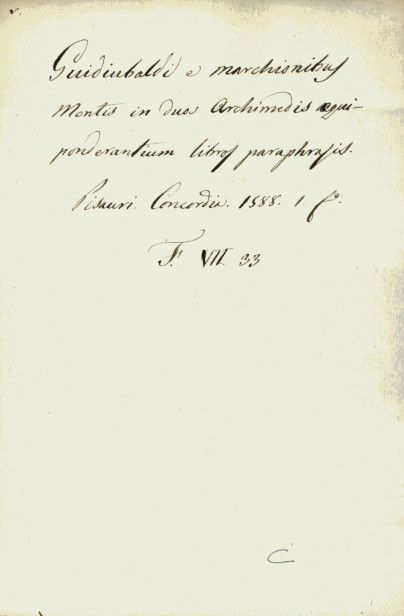 v.
Guidiubaldi e marchionibus
Montis in duos Archimedis æqui-
ponderantium libros paraphrasis.
Pisauri. Concordia. 1588. 1. fo.
F. VII. 33
C